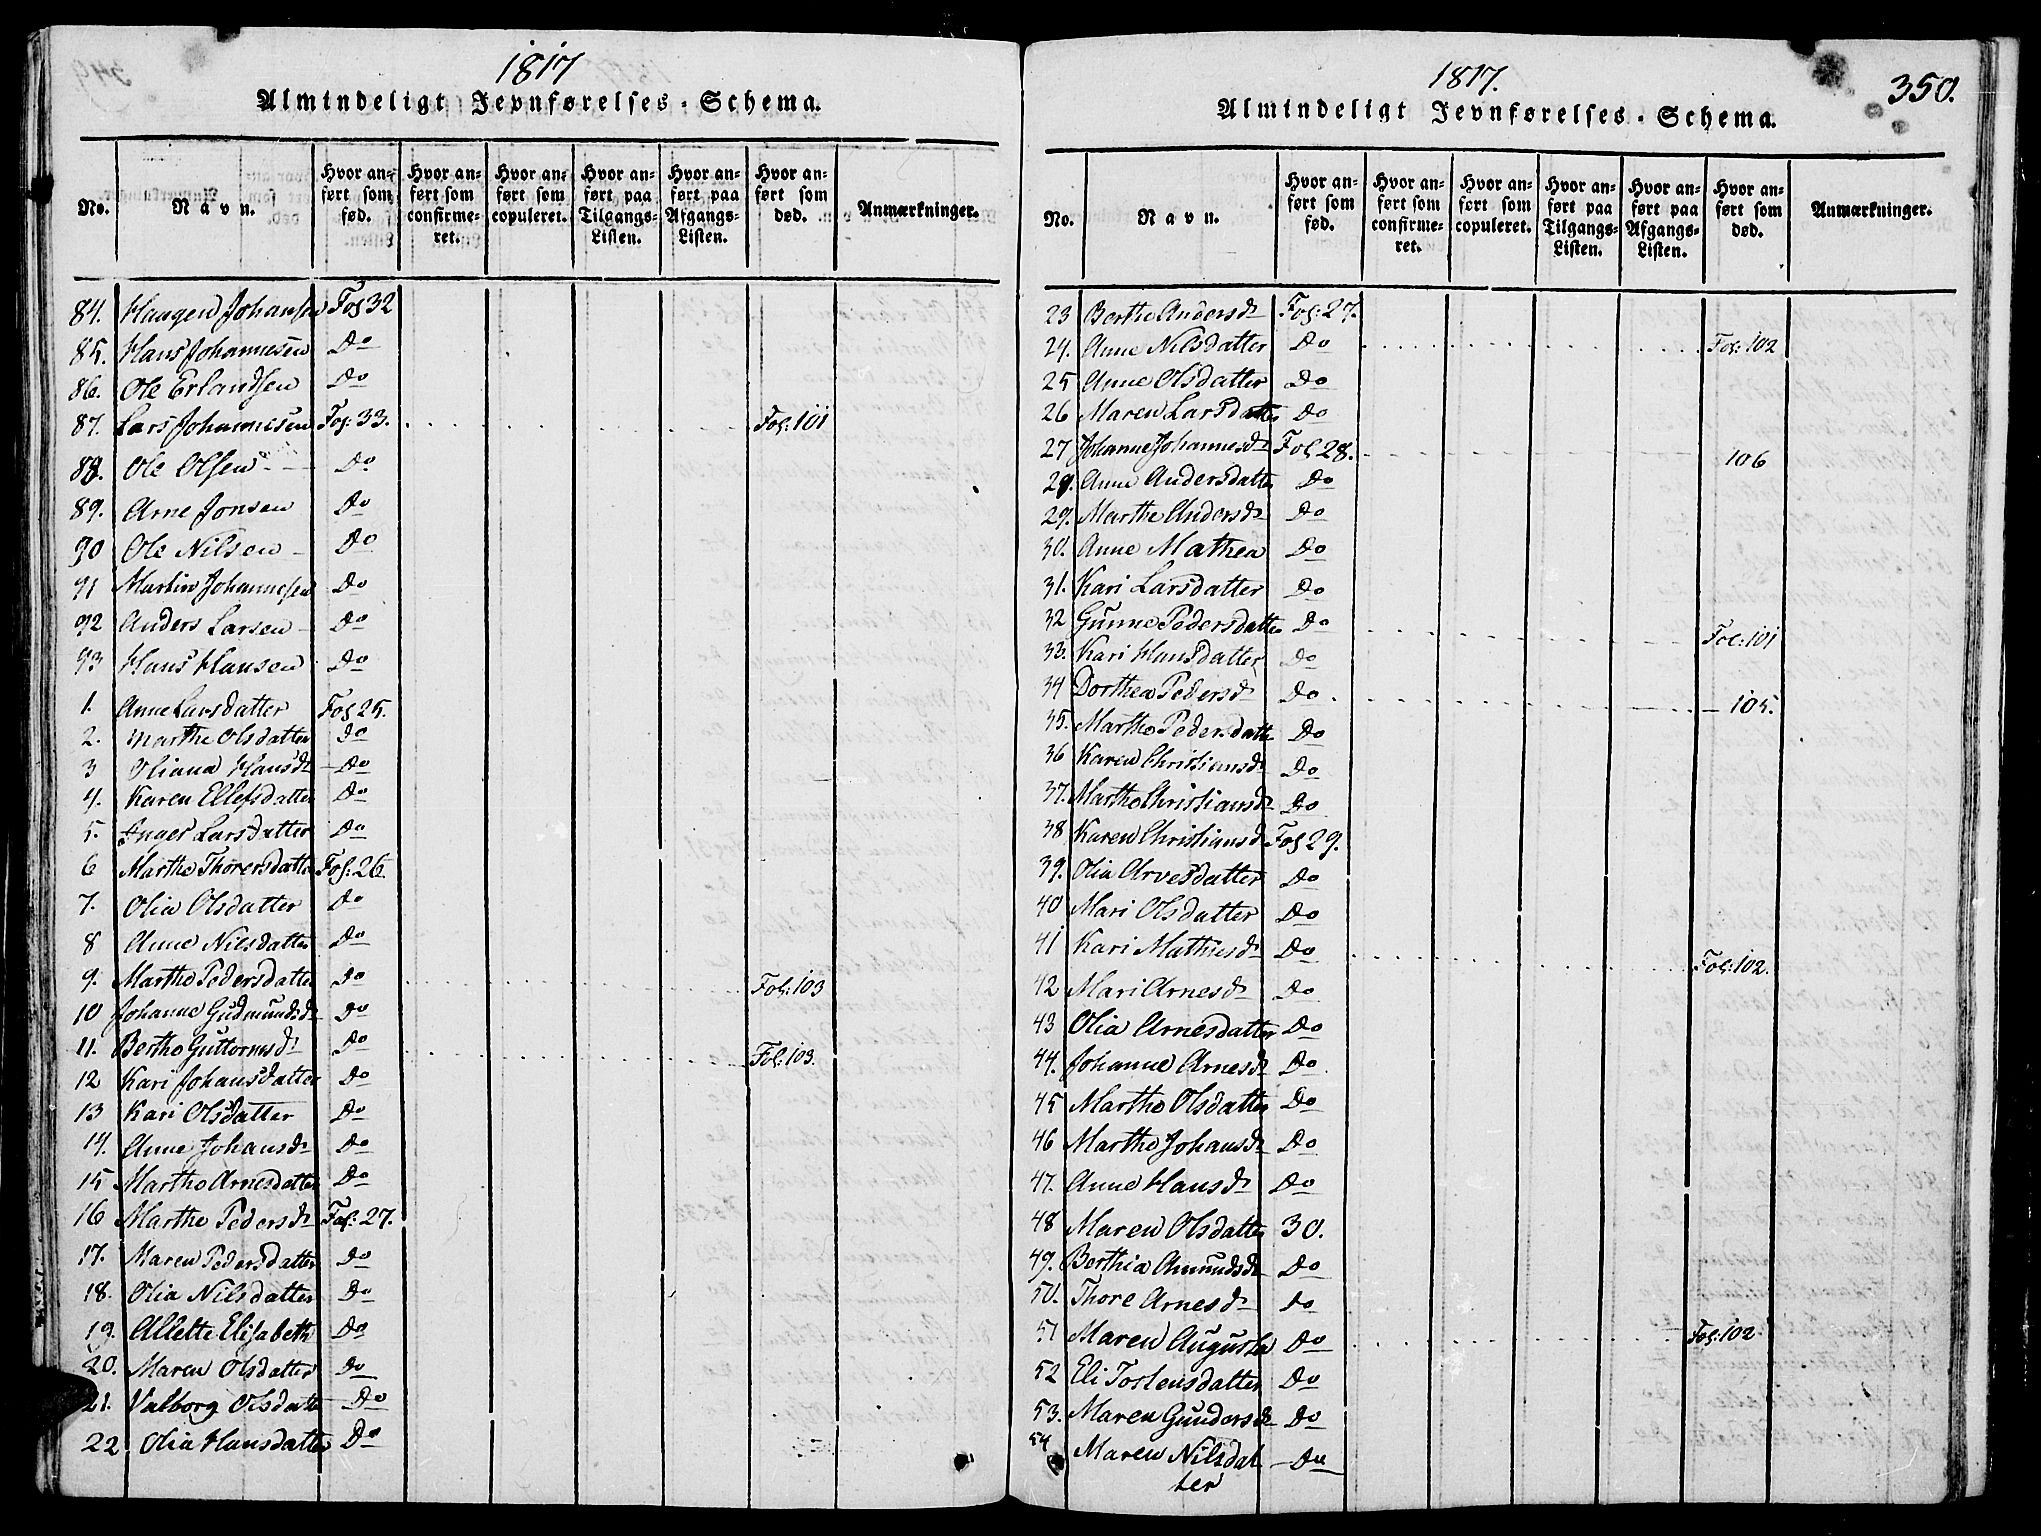 1817
Almindeligt Jevnførelses-Schema.
No. Navn. Hvor anført som fød. Hvor anført som confirmeret. Hvor anført som copuleret. Hvor anført paa Tilgangs-Listen. Hvor anført paa Afgangs-Listen. Hvor anført som død. Anmærkninger.
84. Haagen Johansen Fol 32
85. Hans Johannesen Do
86. Ole Erlandsen Do
87. Lars Johannesen Fol: 33. Fol: 101
88. Ole Olsen Do
89. Arne Jonsen Do
90 Ole Nilsen Do
91 Martin Johannesen Do
92 Anders Larsen Do
93 Hans Hansen Do
1. Anne Larsdatter Fol 25.
2. Marthe Olsdatter do
3 Oliana Hansdr Do
4. Karen Ellefsdatter Do
5. Inger Larsdatter Do
6 Marthe Thorersdatter Fol: 26.
7. Olia Olsdatter Do
8 Anne Nilsdatter Do
9. Marthe Pedersdatter Do Fol: 103
10 Johanne Gudmundsdr Do
11. Berthe Guttormsdr Do Fol: 103.
12 Kari Johansdatter Do
13 Kari Olsdatter Do
14. Anne Johansdr Do
15 Marthe Arnesdatter Do
16 Marthe Pedersdr Fol: 27.
17. Maren Pedersdatter Do
18. Olia Nilsdatter Do
19. Allette Elisabeth Do
20. Maren Olsdatter Do
21. Valborg Olsdatter Do
22 Olia Hansdatter Do
350.
1817.
Almindeligt Jevnførelses-Schema.
No. Navn. Hvor anført som fød. Hvor anført som confirmeret. Hvor anført som copuleret. Hvor anført paa Tilgangs-Listen. Hvor anført paa Afgangs-Listen. Hvor anført som død. Anmærkninger.
23 Berthe Andersdr Fol: 27.
24. Anne Nilsdatter Do Fol: 102
25 Anne Olsdatter Do
26 Maren Larsdatter Do
27 Johanne Johannesdr Fol 28. 106
28. Anne Andersdatter Do
29. Marthe Andersdr Do
30. Anne Mathea Do
31. Kari Larsdatter Do
32 Gunne Pedersdatter Do Fol: 101
33. Kari Hansdatter Do
34 Dorthea Pedersdr Do 105.
35. Marthe Pedersdatter Do
36 Karen Christiansdr Do
37. Marthe Christiansdr Do
38 Karen Christiansd Fol 29.
39. Olia Arvesdatter Do
40 Mari Olsdatter Do
41 Kari Mathiesdr Do Fol: 102.
42 Mari Arnesdr Do
43 Olia Arnesdatter Do
44. Johanne Arnesdr Do
45 Marthe Olsdatter Do
46 Marthe Johansdr Do
47. Anne Hansdr Do
48 Maren Olsdatter 30.
49. Berthia Amundsdr Do
50. Thore Arnesdr Do
51 Maren Augusta Do Fol: 102
52 Eli Tostensdatter Do
53. Maren Gundersdr Do
54 Maren Nilsdat Do
ter